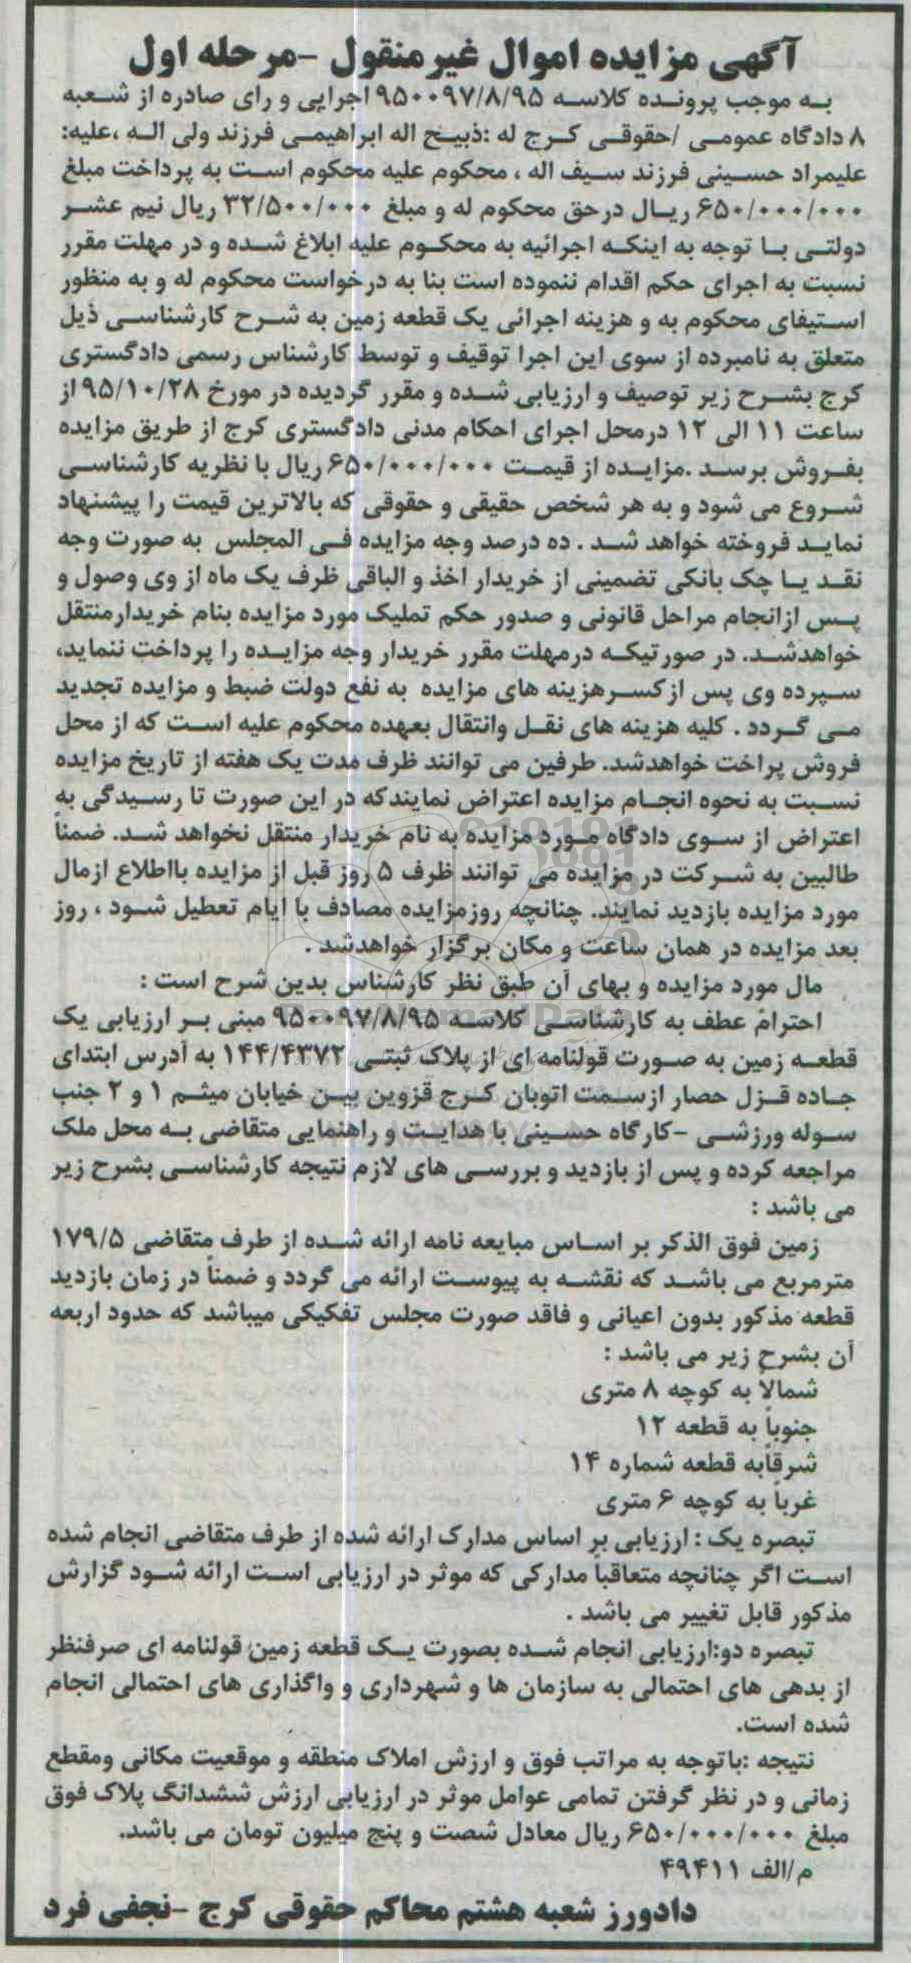 آگهی مزایده اموال غیرمنقول -مرحله اول
به موجب پرونده کلاسه ۹۵۰۰۹۷/۸/۹۵ اجرایی و رای صادره از شعبه
۸ دادگاه عمومی /حقوقی کرج له :ذبیح اله ابراهیمی فرزند ولی اله ،علیه:
علیمراد حسینی فرزند سیف اله ، محکوم علیه محکوم است به پرداخت مبلغ
۶۵۰/۰۰۰/۰۰۰ ریال درحق محکوم له و مبلغ ۳۲/۵۰۰/۰۰۰ ریال نیم عشر
دولتی با توجه به اینکه اجرائیه به محکوم علیه ابلاغ شده و در مهلت مقرر
نسبت به اجرای حکم اقدام ننموده است بنا به درخواست محکوم له و به منظور
استیفای محکوم به و هزینه اجرائی یک قطعه زمین به شرح کارشناسی ذیل
متعلق به نامبرده از سوی این اجرا توقیف و توسط کارشناس رسمی دادگستری
کرج بشرح زیر توصیف و ارزیابی شده و مقرر گردیده در مورخ ۹۵/۱۰/۲۸ از
ساعت ۱۱ الی ۱۲ درمحل اجرای احکام مدنی دادگستری کرج از طریق مزایده
بفروش برسد .مزایده از قیمت ۶۵۰/۰۰۰/۰۰۰ ریال با نظریه کارشناسی
شروع می شود و به هر شخص حقیقی و حقوقی که بالاترین قیمت را پیشنهاد
نماید فروخته خواهد شد . ده درصد وجه مزایده فی المجلس به صورت وجه
نقد یا چک بانکی تضمینی از خریدار اخذ و الباقی ظرف یک ماه از وی وصول و
پس ازانجام مراحل قانونی و صدور حکم تملیک مورد مزایده بنام خریدارمنتقل
خواهدشد. در صورتیکه درمهلت مقرر خریدار وجه مزایده را پرداخت ننماید،
سپرده وی پس ازکسرهزینه های مزایده به نفع دولت ضبط و مزایده تجدید
می گردد . کلیه هزینه های نقل وانتقال بعهده محکوم علیه است که از محل
فروش پراخت خواهدشد. طرفین می توانند ظرف مدت یک هفته از تاریخ مزایده
نسبت به نحوه انجام مزایده اعتراض نمایندکه در این صورت تا رسیدگی به
اعتراض از سوی دادگاه مورد مزایده به نام خریدار منتقل نخواهد شد. ضمناً
طالبین به شرکت در مزایده می توانند ظرف ۵ روز قبل از مزایده بااطلاع ازمال
مورد مزایده بازدید نمایند. چنانچه روزمزایده مصادف با ایام تعطیل شود ، روز
بعد مزایده در همان ساعت و مکان برگزار خواهدشد .
مال مورد مزایده و بهای آن طبق نظر کارشناس بدین شرح است :
احتراماً عطف به کارشناسی کلاسه ۹۵۰۰۹۷/۸/۹۵ مبنی بر ارزیابی یک
قطعه زمین به صورت قولنامه ای از پلاک ثبتی ۱۴۴/۴۳۷۲ به آدرس ابتدای
جاده قزل حصار ازسمت اتوبان کرج قزوین بین خیابان میثم ۱ و ۲ جنب
سوله ورزشی -کارگاه حسینی با هدایت و راهنمایی متقاضی به محل ملک
مراجعه کرده و پس از بازدید و بررسی های لازم نتیجه کارشناسی بشرح زیر
می باشد :
زمین فوق الذکر بر اساس مبایعه نامه ارائه شده از طرف متقاضی ۱۷۹/۵
مترمربع می باشد که نقشه به پیوست ارائه می گردد و ضمناً در زمان بازدید
قطعه مذکور بدون اعیانی و فاقد صورت مجلس تفکیکی میباشد که حدود اربعه
آن بشرح زیر می باشد :
شمالاً به کوچه ۸ متری
جنوباً به قطعه ۱۲
شرقاًبه قطعه شماره ۱۴
غرباً به کوچه ۶ متری
تبصره یک : ارزیابی بر اساس مدارک ارائه شده از طرف متقاضی انجام شده
است اگر چنانچه متعاقباً مدارکی که موثر در ارزیابی است ارائه شود گزارش
مذکور قابل تغییر می باشد .
تبصره دو:ارزیابی انجام شده بصورت یک قطعه زمین قولنامه ای صرفنظر
از بدهی های احتمالی به سازمان ها و شهرداری و واگذاری های احتمالی انجام
شده است.
نتیجه :باتوجه به مراتب فوق و ارزش املاک منطقه و موقعیت مکانی ومقطع
زمانی و در نظر گرفتن تمامی عوامل موثر در ارزیابی ارزش ششدانگ پلاک فوق
مبلغ ۶۵۰/۰۰۰/۰۰۰ ریال معادل شصت و پنج میلیون تومان می باشد.
م/الف ۴۹۴۱۱
دادورز شعبه هشتم محاکم حقوقی کرج -نجفی فرد